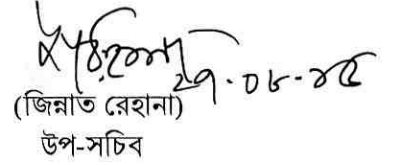 ২৭.০৮.২৫
(জিন্নাত রেহানা)
উপ-সচিব